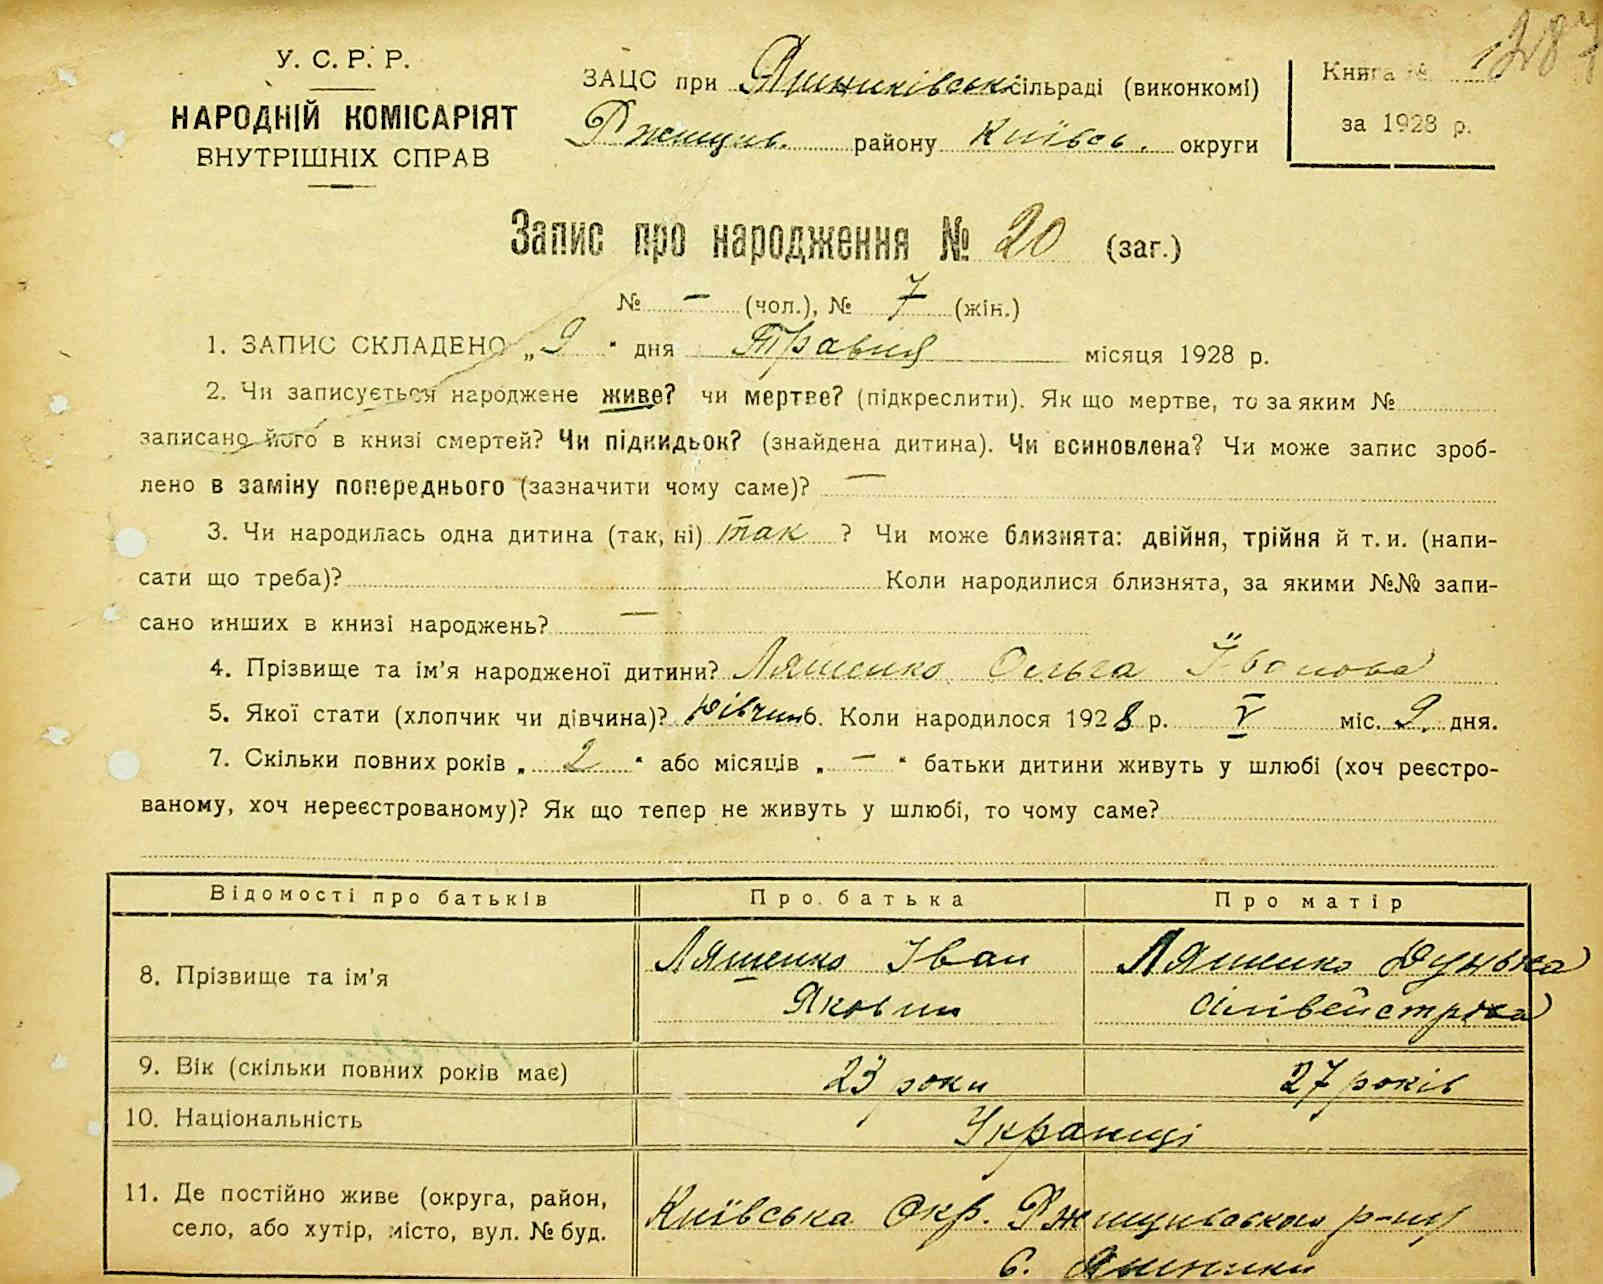 У. С. Р. Р.
НАРОДНІЙ КОМІСАРІЯТ
ВНУТРІШНІХ СПРАВ
ЗАЦС при Яшниківськ сільраді (виконкомі)
Ржищів. району Київсь. округи
Книга №
за 1928 р.
287
Запис про народження № 20 (заг.)
№ — (чол.), № 7 (жін.)
1. ЗАПИС СКЛАДЕНО „9“ дня Травня місяця 1928 р.
2. Чи записується народжене живе? чи мертве? (підкреслити). Як що мертве, то за яким №
записано його в книзі смертей? Чи підкидьок? (знайдена дитина). Чи всиновлена? Чи може запис зроб-
лено в заміну попереднього (зазначити чому саме)? —
3. Чи народилась одна дитина (так, ні) так ? Чи може близнята: двійня, трійня й т. и. (напи-
сати що треба)? Коли народилися близнята, за якими №№ запи-
сано инших в книзі народжень? —
4. Прізвище та ім’я народженої дитини? Ляшенко Ольга Івонова
5. Якої стати (хлопчик чи дівчина)? дівчин 6. Коли народилося 1928 р. V міс. 9 дня.
7. Скільки повних років „2“ або місяців „—“ батьки дитини живуть у шлюбі (хоч реєстро-
ваному, хоч нереєстрованому)? Як що тепер не живуть у шлюбі, то чому саме?
Відомості про батьків Про батька Про матір
8. Прізвище та ім’я Ляшенко Іван Ляшенко Дунька
Якович Сілівейстрова
9. Вік (скільки повних років має) 23 роки 27 років
10. Національність Українці
11. Де постійно живе (округа, район, Київська Окр. Ржищівського р-ну
село, або хутір, місто, вул. № буд. С. Яшники